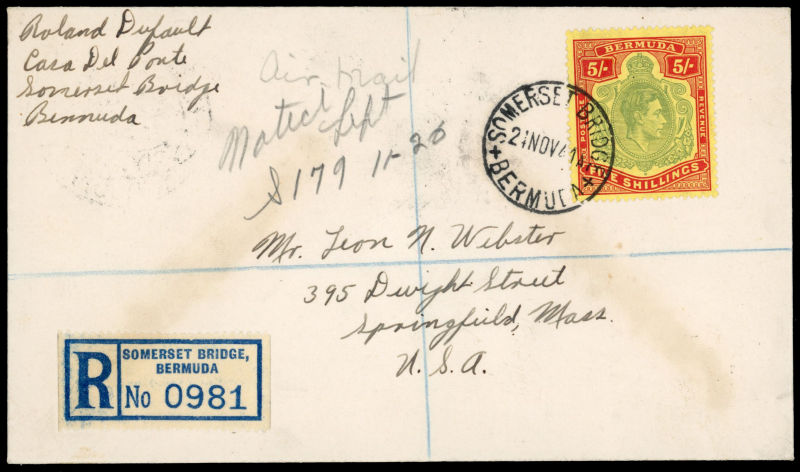 Roland Dufault
Casa Del Ponte
Somerset Bridge
Bermuda
Air Mail
Sept
S179 11-26
BERMUDA
5/- 5/-
POSTAGE
REVENUE
FIVE SHILLINGS
SOMERSET BRIDGE
21NOV41
BERMUDA
Mr. Leon N. Webster
395 Dwight Street
Springfield, Mass.
U.S.A.
R
SOMERSET BRIDGE,
BERMUDA
No 0981